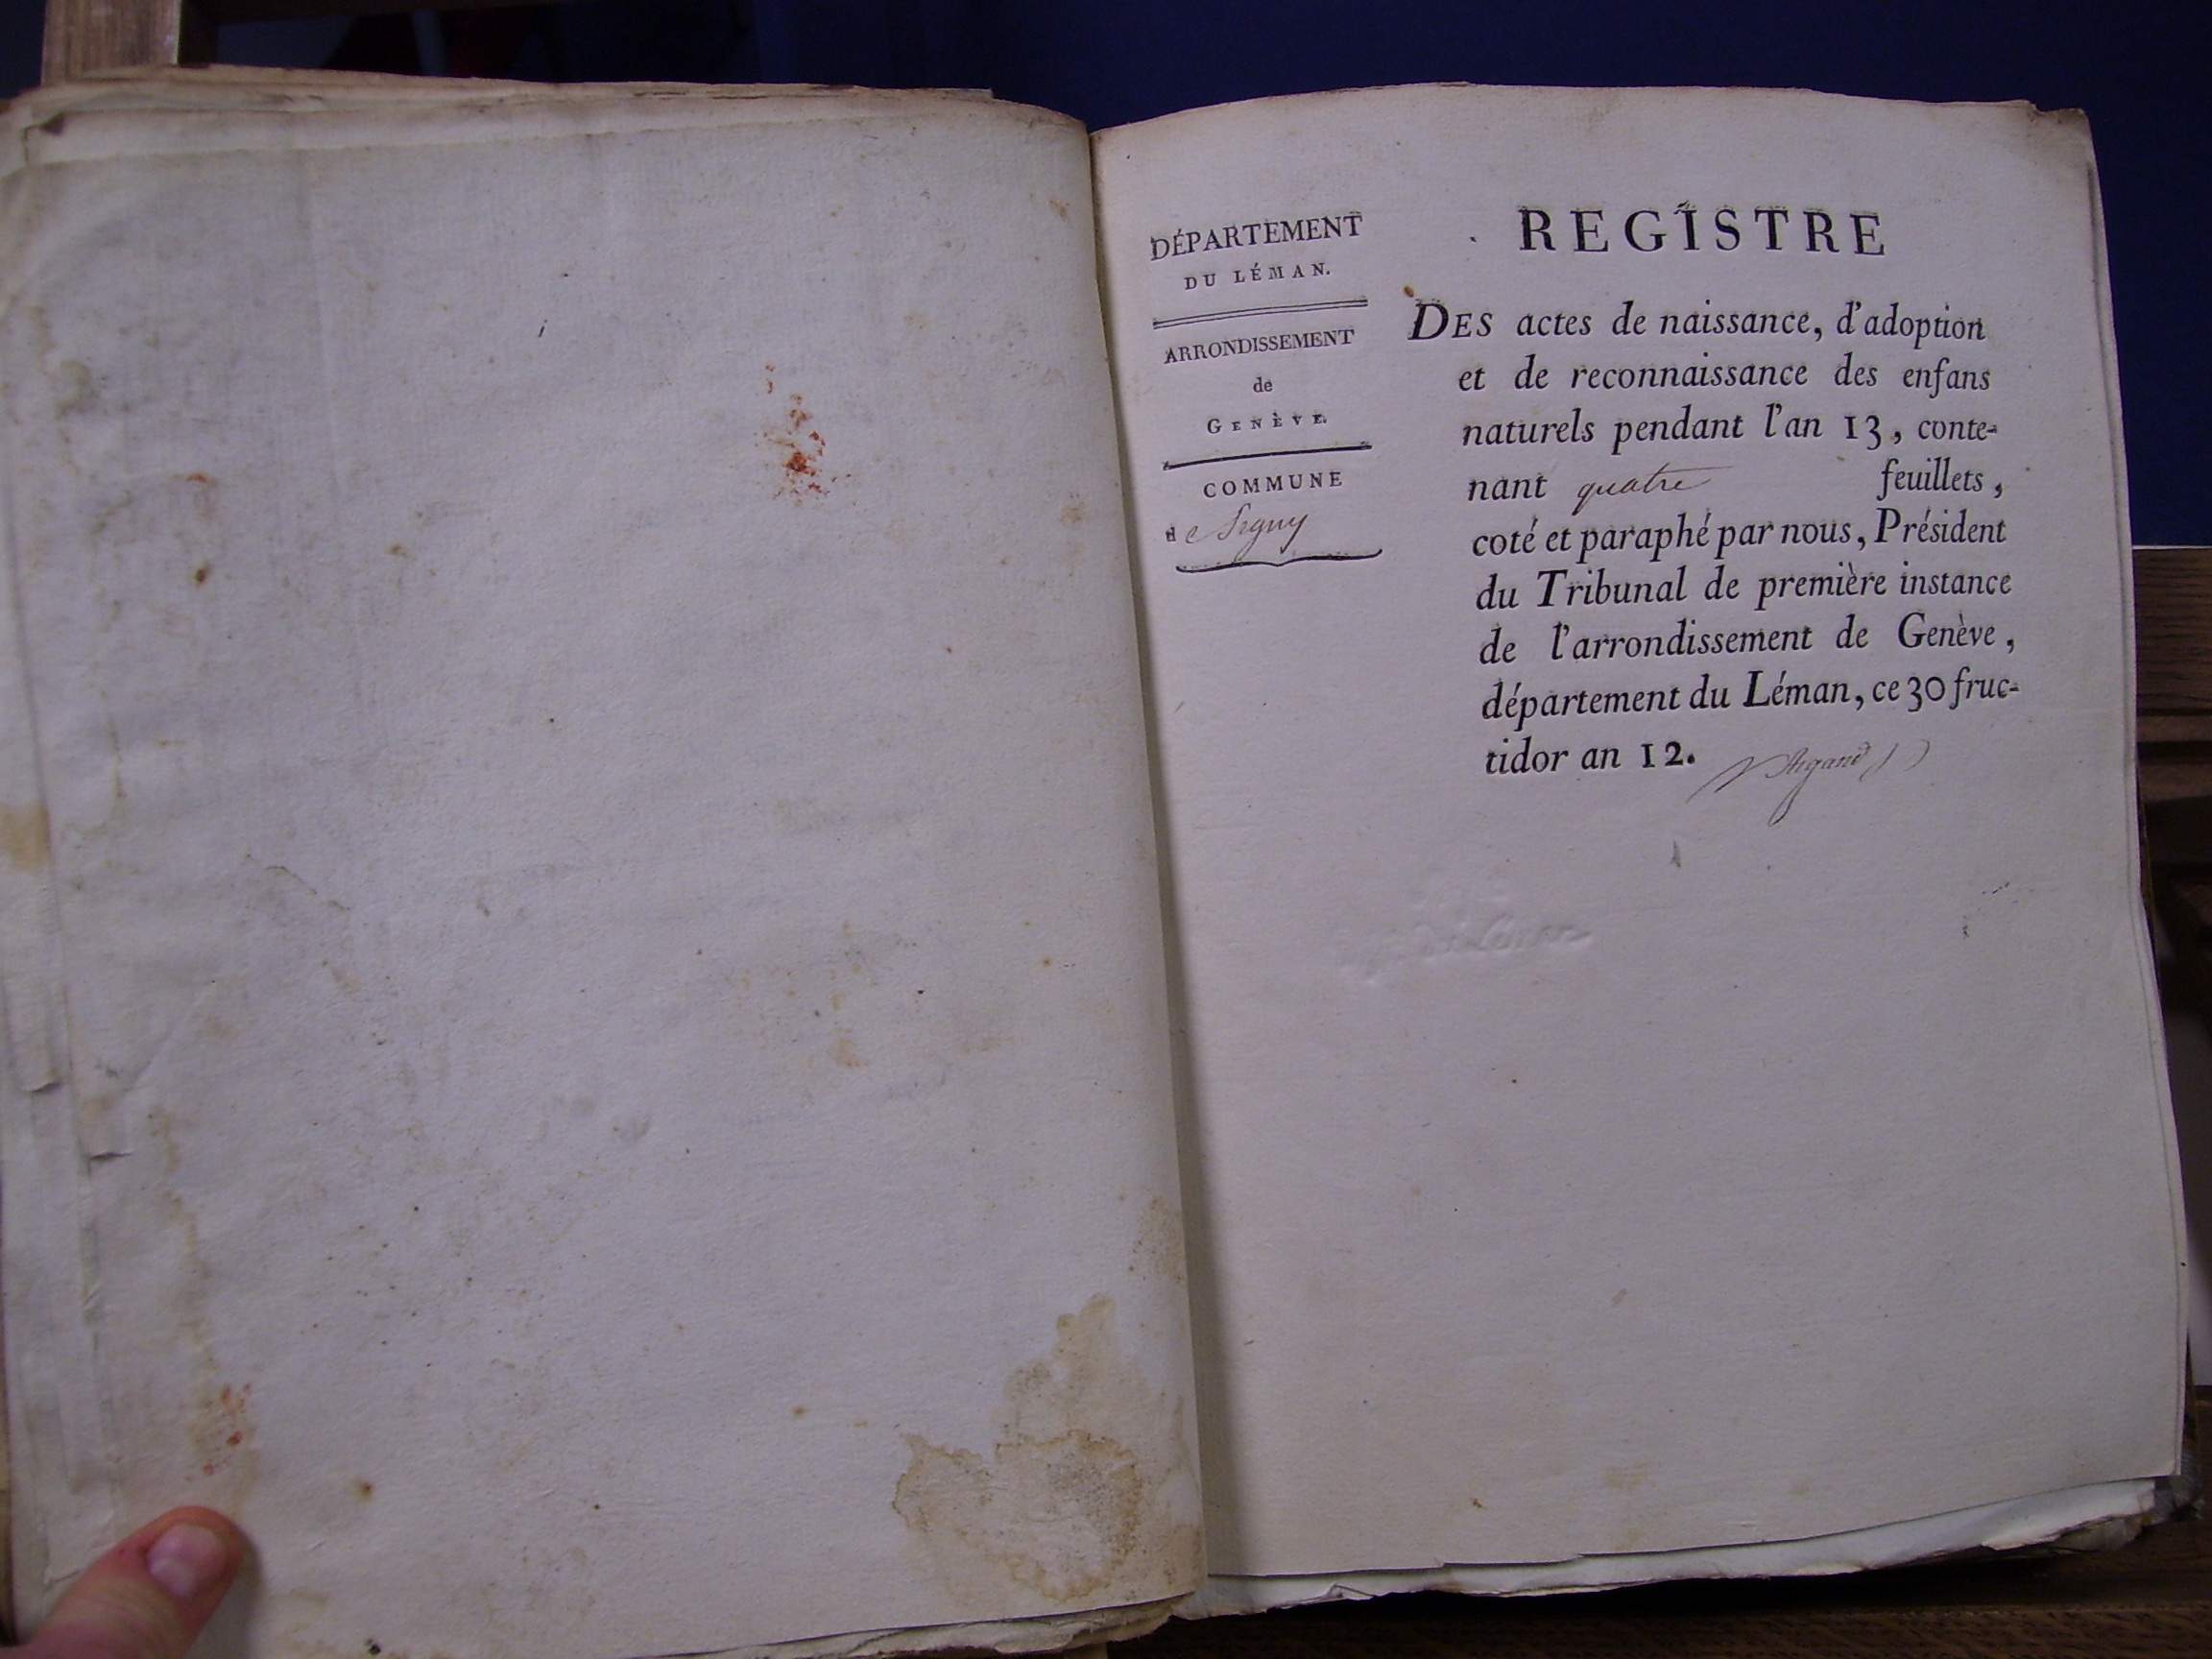 DÉPARTEMENT
DU LÉMAN.
ARRONDISSEMENT
de
GENÈVE.
COMMUNE
de Segny
REGISTRE
DES actes de naissance, d'adoption
et de reconnaissance des enfans
naturels pendant l'an 13, conte-
nant quatre feuillets,
coté et paraphé par nous, Président
du Tribunal de première instance
de l'arrondissement de Genève,
département du Léman, ce 30 fruc-
tidor an 12. Argand